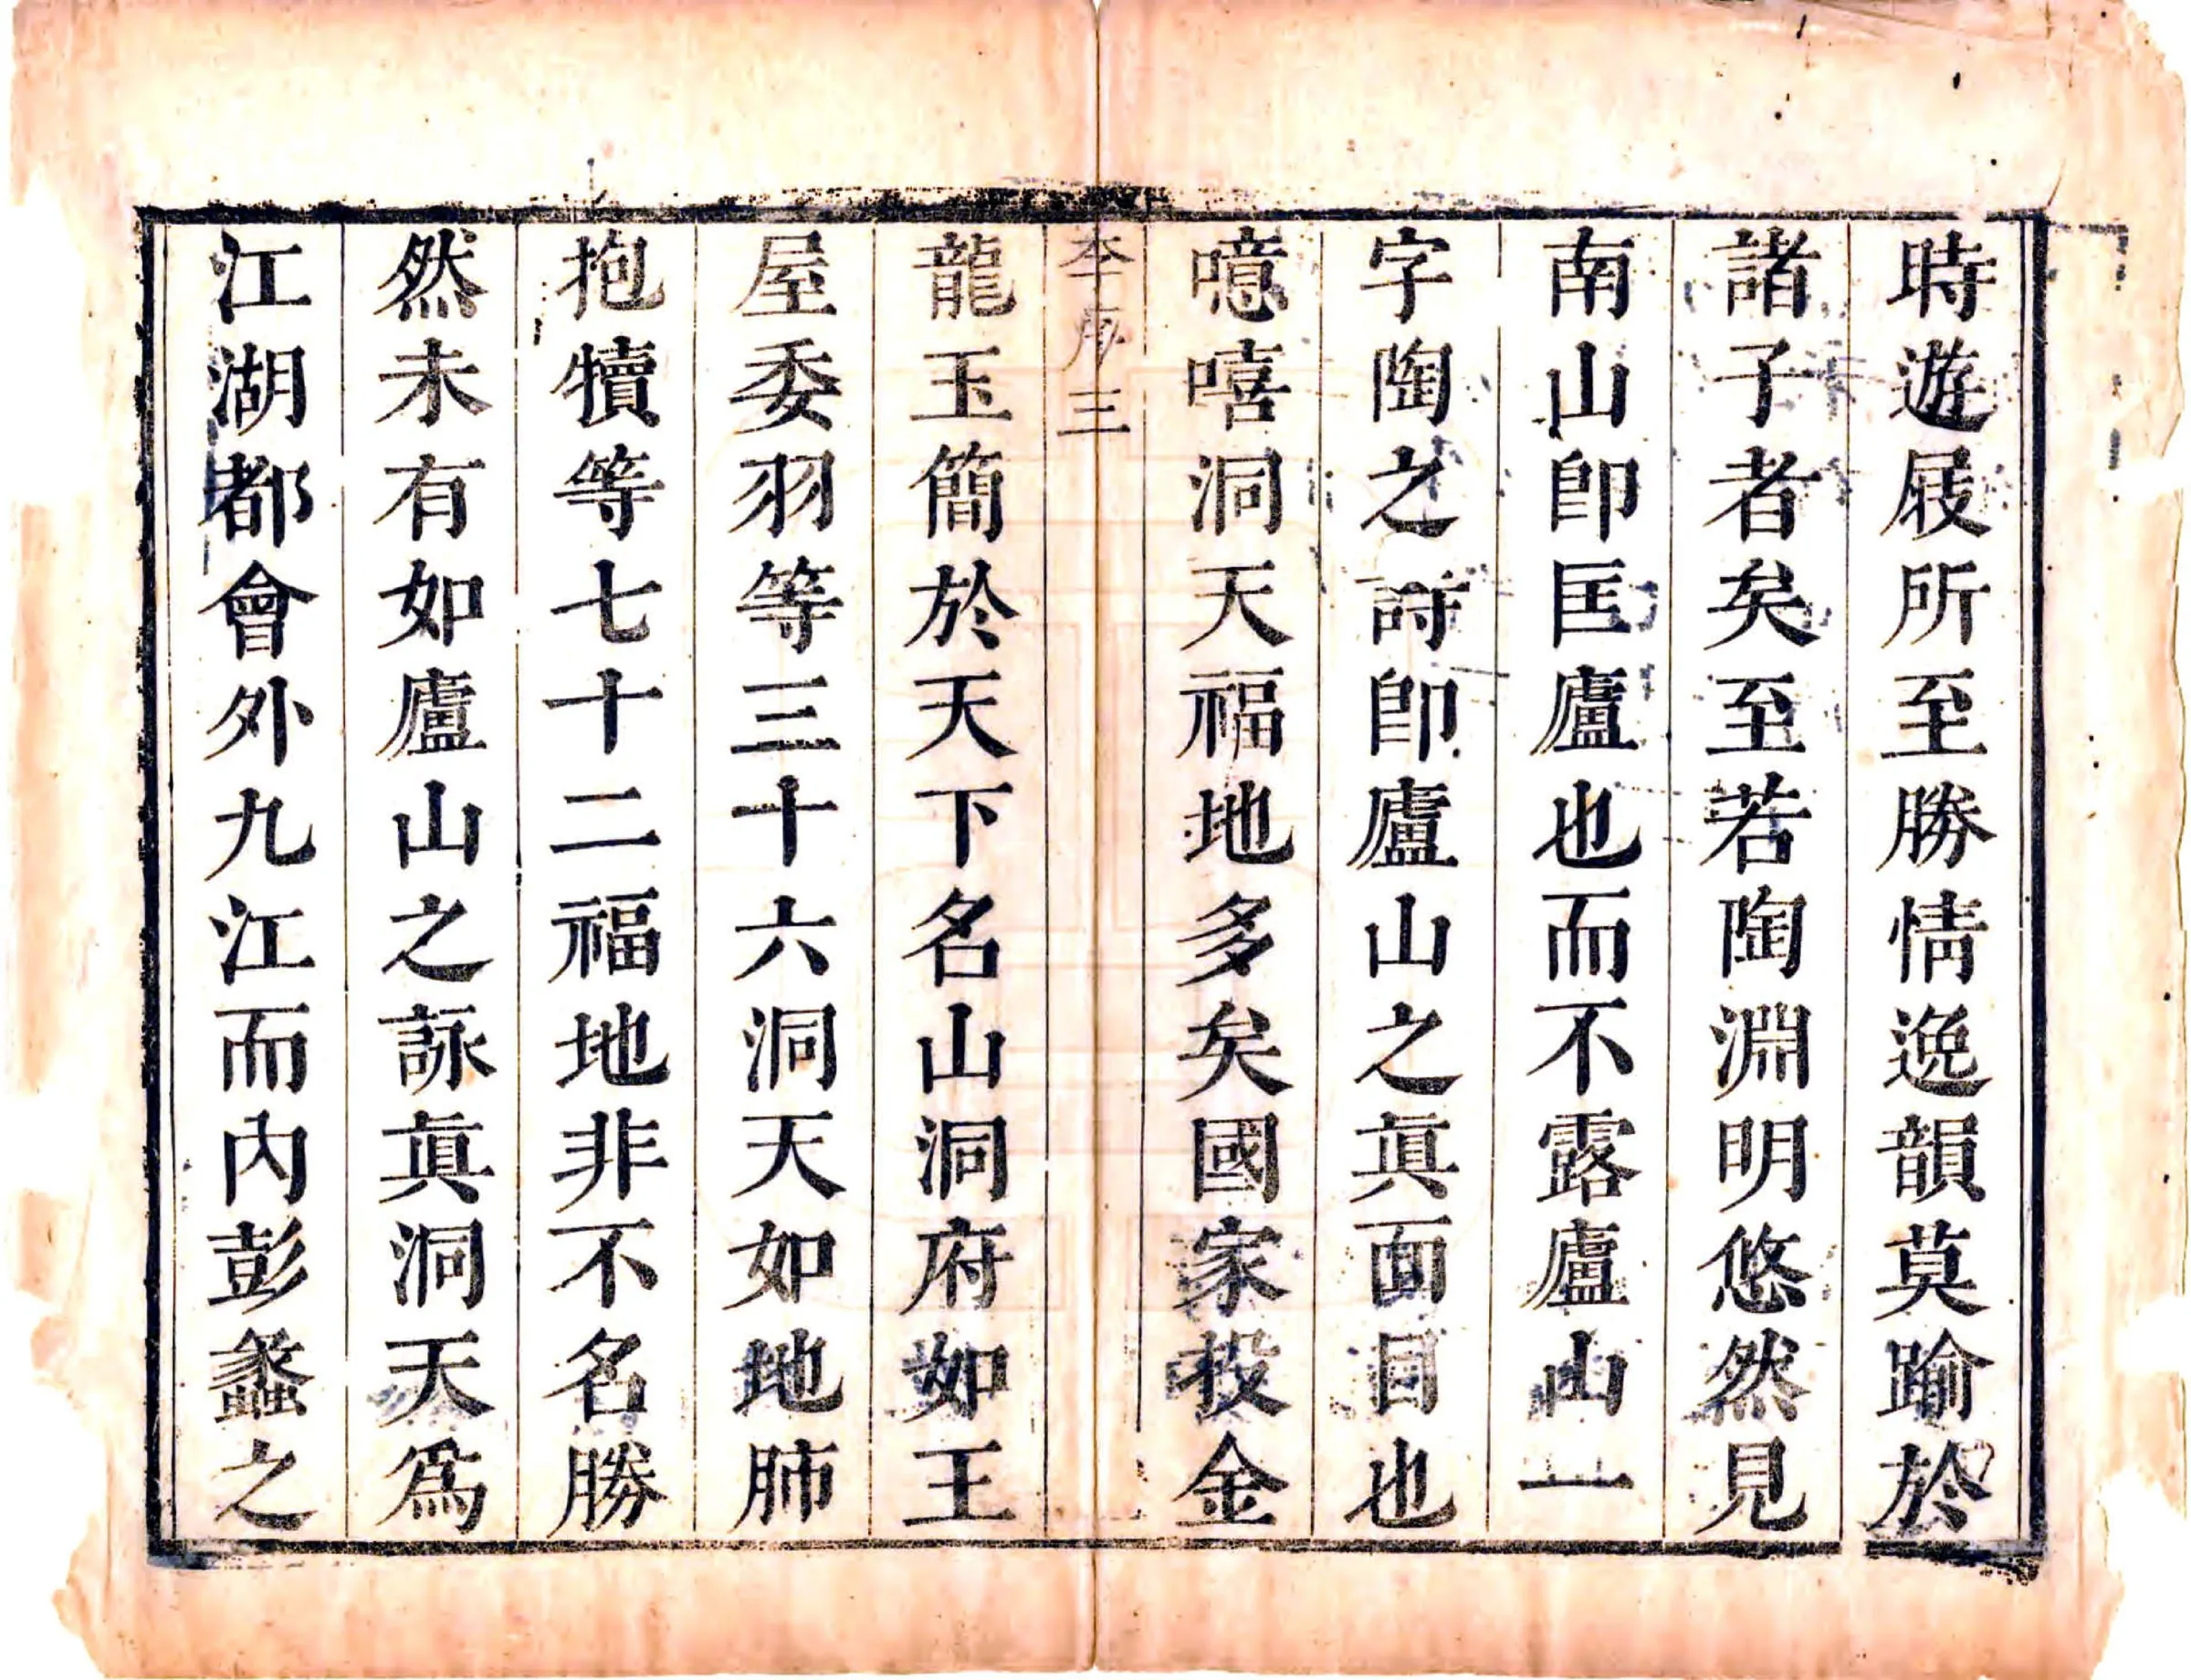 時遊屐所至勝情逸韻莫踰於
諸子者矣至若陶淵明悠然見
南山卽匡廬也而不露廬山一
字陶之詩卽廬山之眞面目也
噫嘻洞天福地多矣國家投金
李序三
龍玉簡於天下名山洞府如王
屋委羽等三十六洞天如地肺
抱犢等七十二福地非不名勝
然未有如廬山之詠眞洞天爲
江湖都會外九江而內彭蠡之